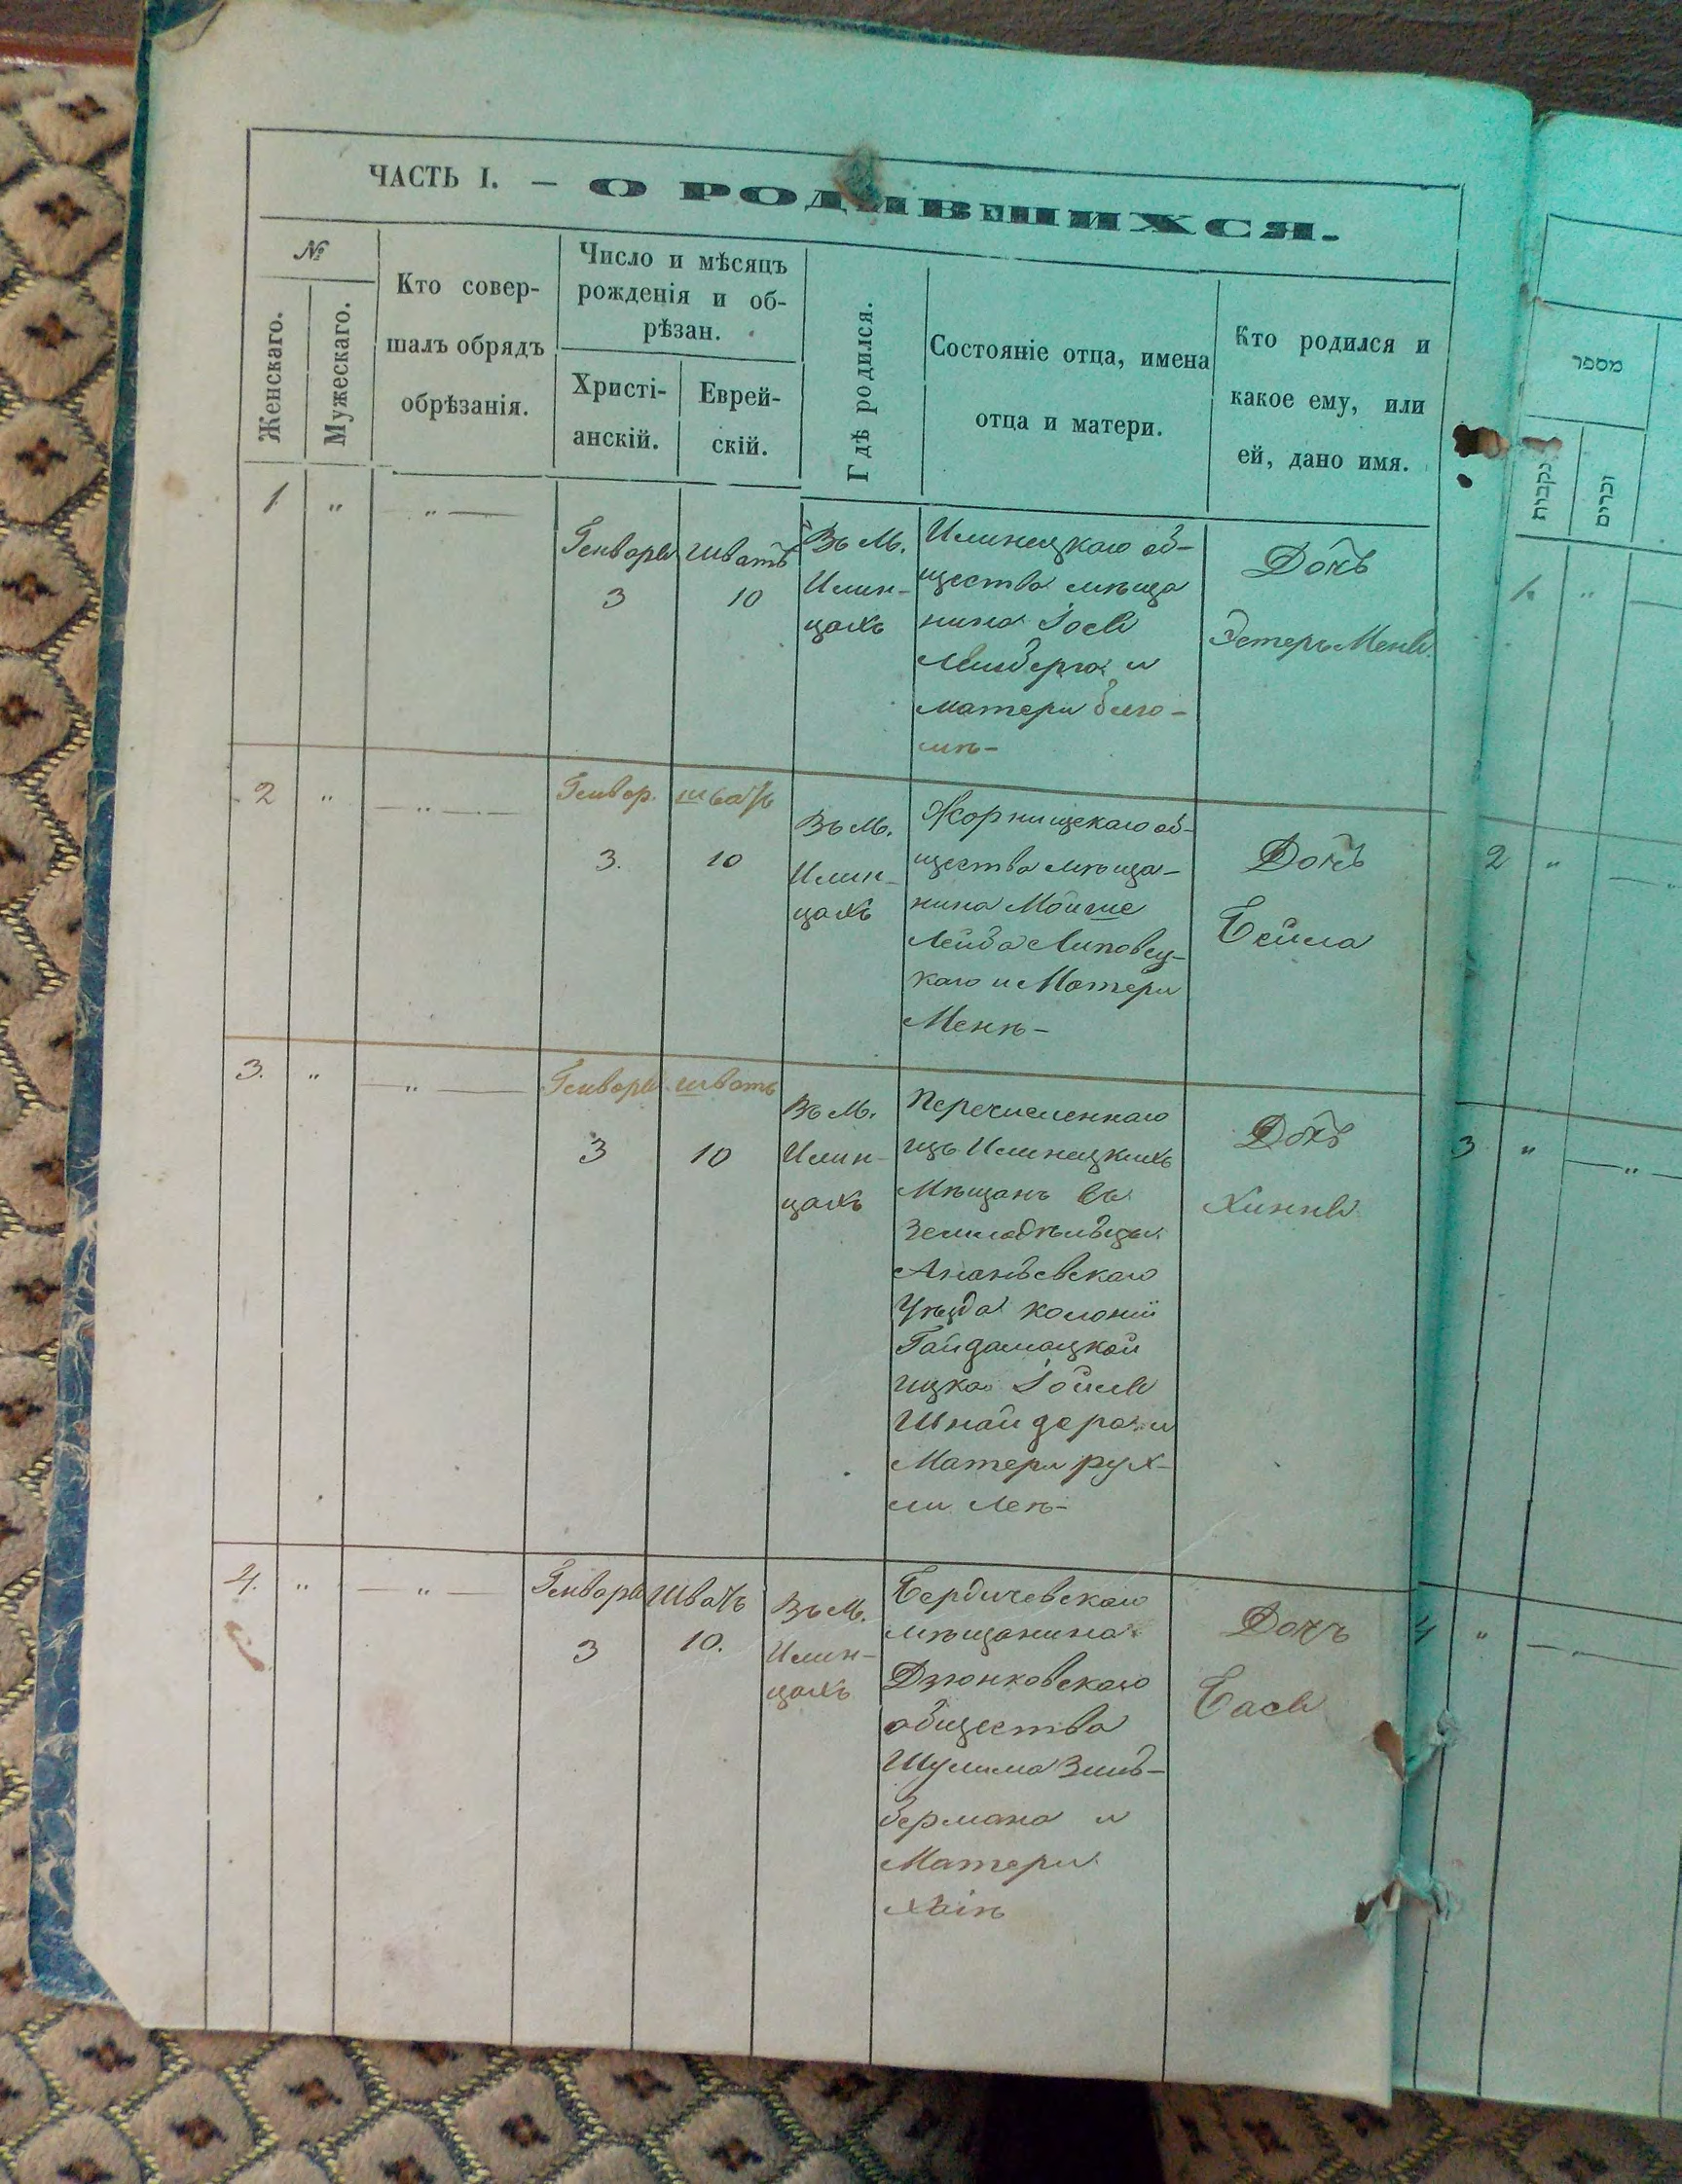 ЧАСТЬ I. — О РОДИВШИХСЯ.
№
Женскаго.
Мужескаго.
Кто совер-
шалъ обрядъ
обрѣзанія.
Число и мѣсяцъ
рожденія и об-
рѣзан.
Христі-
анскій.
Еврей-
скій.
Гдѣ родился.
Состояніе отца, имена
отца и матери.
Кто родился и
какое ему, или
ей, дано имя.
1 " — " —
Генваря
3
Шватъ
10
Въ М.
Илин-
цахъ
Илинецкаго об-
щества мѣща
нина Іося
матери
Дочь
Эстеръ Меня
2 " — " —
Генвар.
3.
шватъ
10
Въ М.
Илин-
цахъ
Жорнищскаго об-
щества мѣща-
нина Мойше
Лейба Липовец-
каго и Матери
Мени-
Дочь
Бейла
3. " — " —
Генваря
3
шватъ
10
Въ М.
Илин-
цахъ
Перечисленнаго
изъ Илинецкихъ
Мѣщанъ въ
земледѣльцы
Ананьевскаго
Уѣзда колоніи
Гайдамацкой
Ицка Іойля
Шнайдера и
Матери рух-
ли Леѣ-
Дочь
Хиння
4. " — " —
Генваря
3
Шватъ
10.
Въ М.
Илин-
цахъ
Бердичевскаго
мѣщанина
Дзюнковскаго
общества
Шулима Зиль-
бермана и
Матери
Хаіѣ
Дочь
Бася
מספר
נקבות
זכרים
1. " —
2 " — "
3 " — " —
4 " — " —